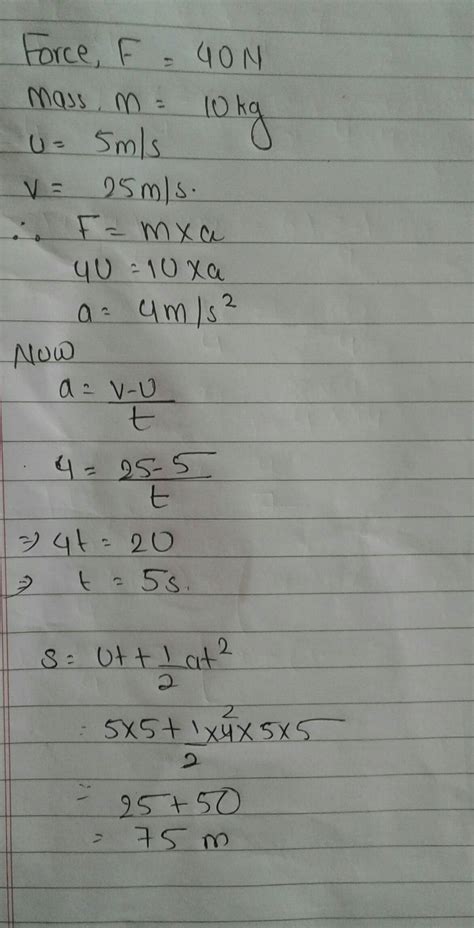 Force, F = 40N
mass, m = 10kg
u = 5m/s
v = 25m/s.
∴ F = m×a
40 = 10×a
a = 4m/s²
Now
a = v-u/t
4 = 25-5/t
⇒ 4t = 20
⇒ t = 5s.
s = ut + 1/2 at²
= 5×5 + 1/2 × 4 2 × 5×5
= 25+50
= 75 m